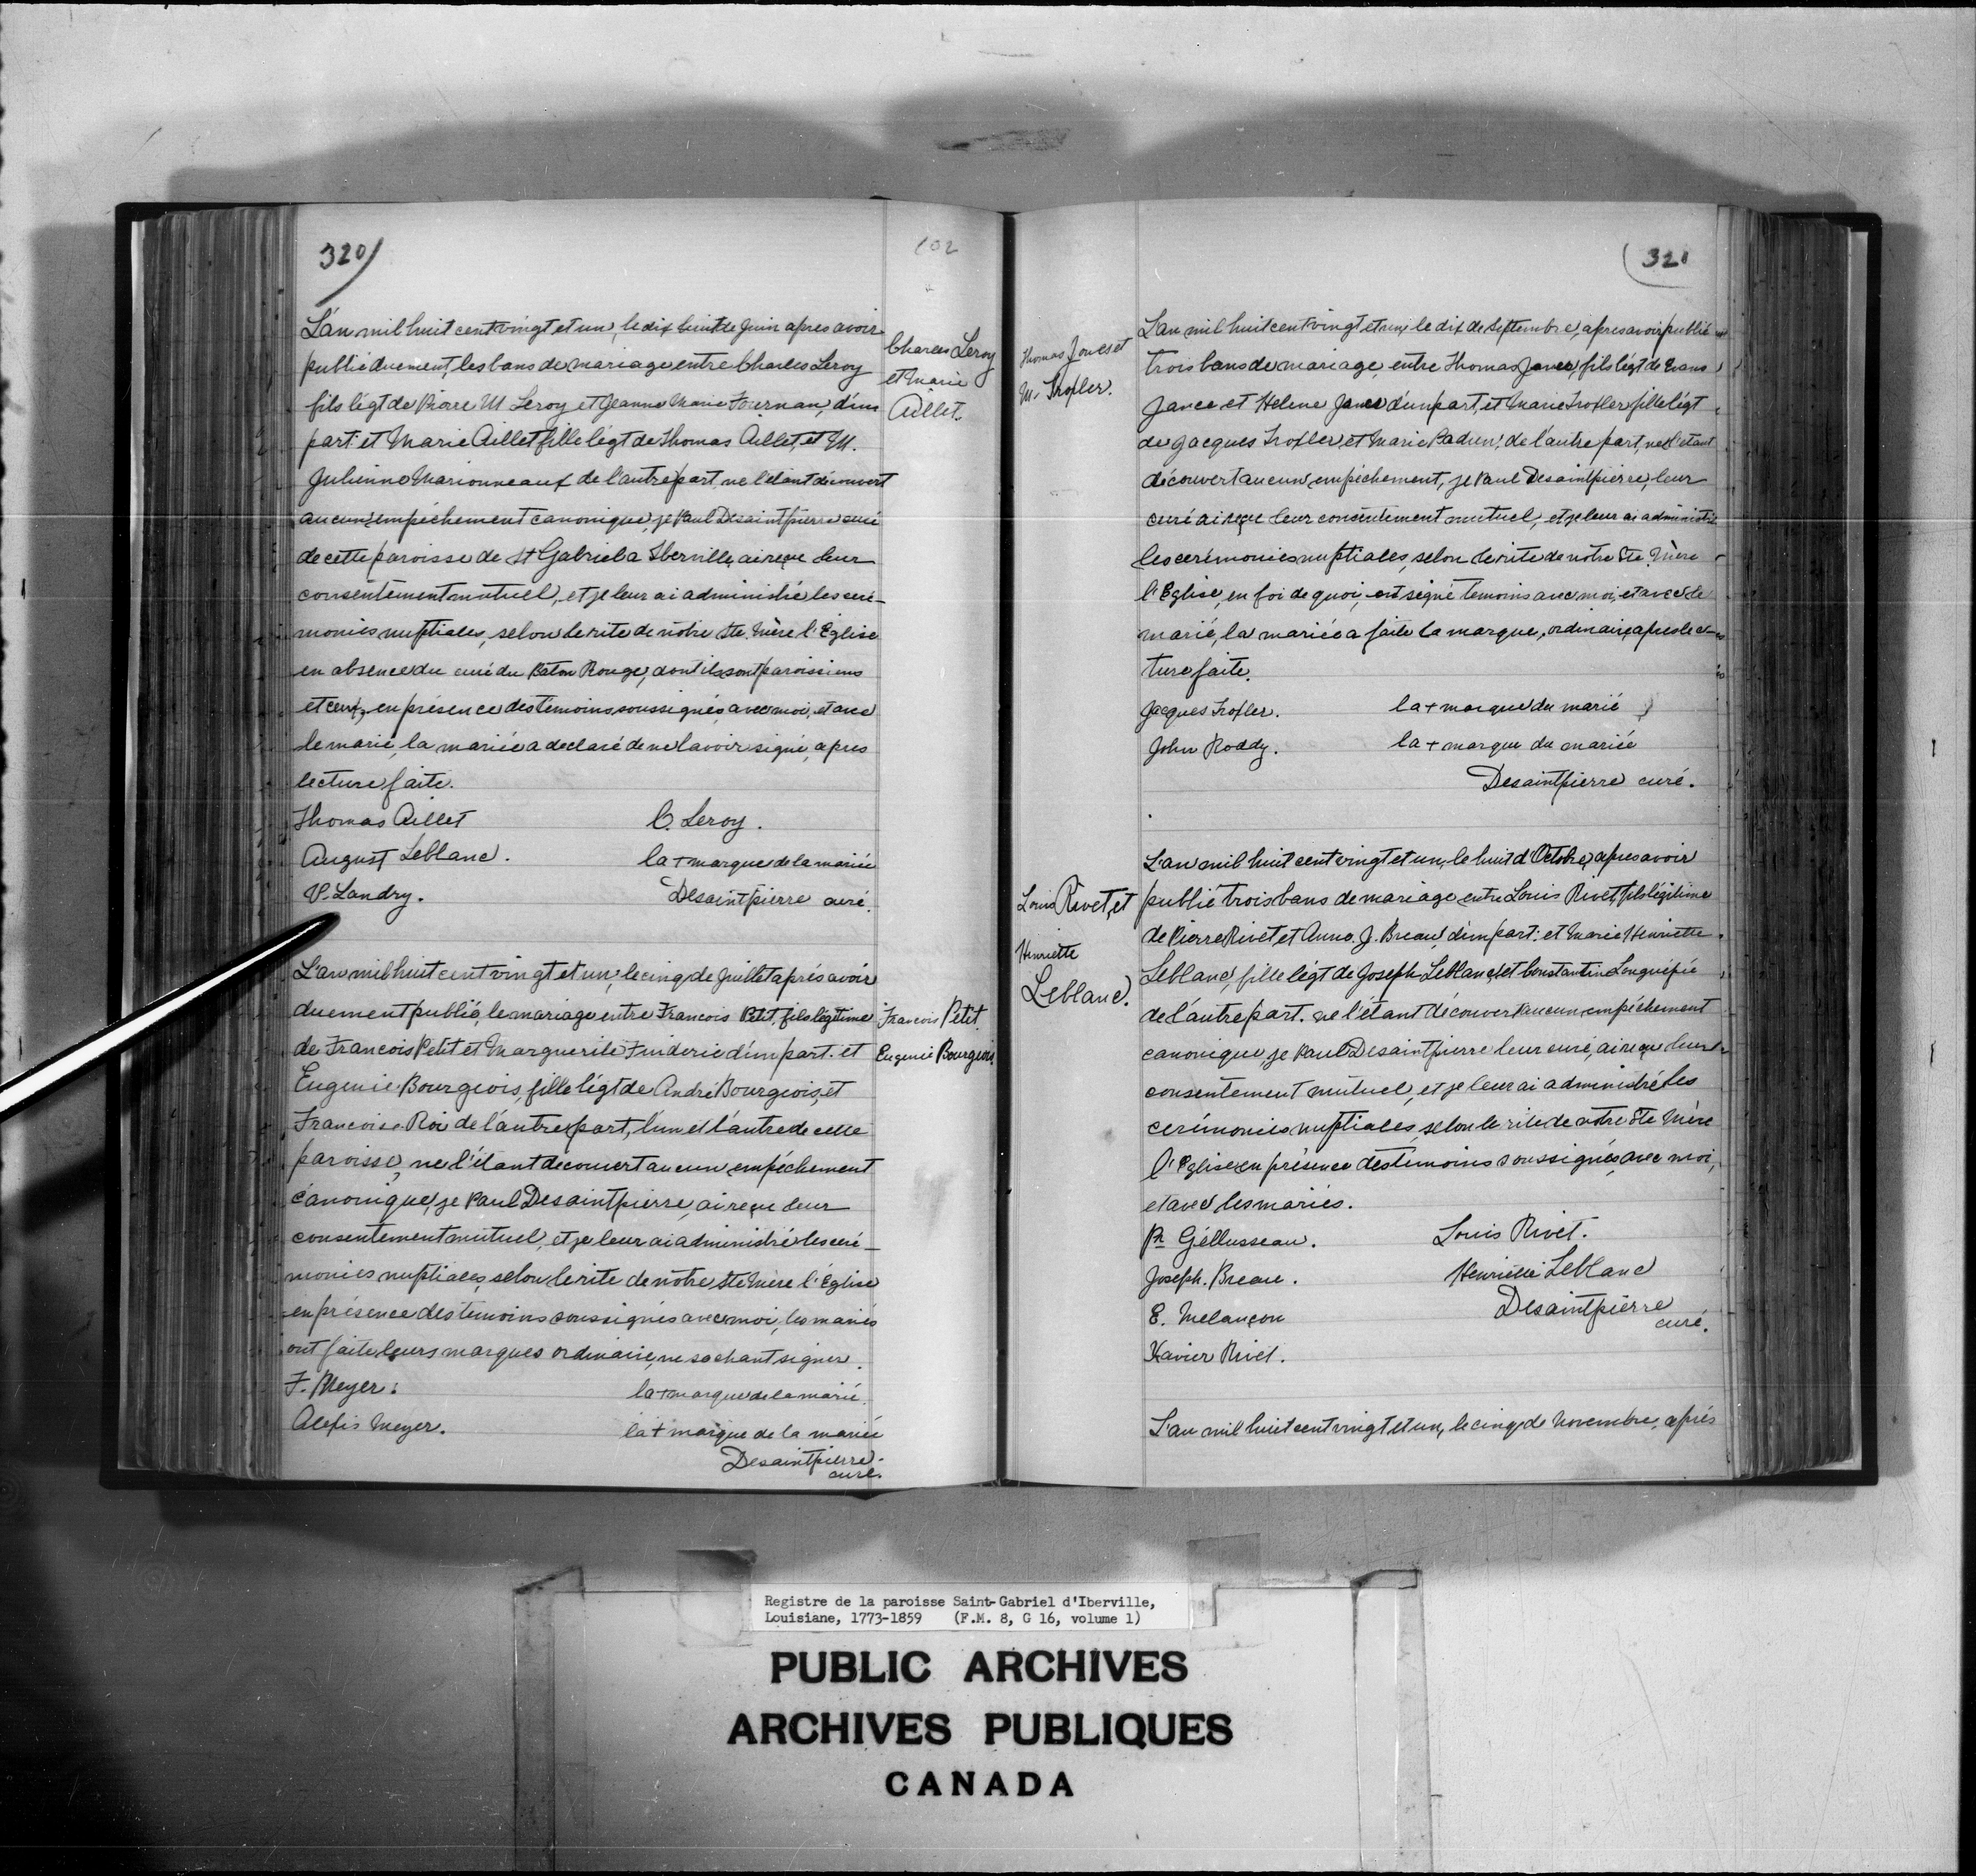 320)
102
L'an mil huit cent vingt et un, le dix huit de Juin apres avoir
publié duement, les bans de mariage entre Charles Leroy
fils légt de Pierre M Leroy et Jeanne Marie Fournan, d'un
part: et Marie Aillet fille légt de Thomas Aillet, et M.
Julienne Marionneaux de l'autre part, ne l'étant découvert
aucun empéchement canonique, je Paul Desaintpierre curé
de cette paroisse de St Gabriel a Iberville, ai reçue leur
consentement mutuel, et je leur ai administré les ceré-
monies nuptiales, selon le rite de notre Ste. Mère l'Eglise
en absence du curé du Baton Rouge, dont ils sont paroissiens
et ceux, en présence des témoins soussignés avec moi, et avec
le marié, la mariée a declaré de ne lavoir signé, apres
lecture faite.
Thomas Aillet C. Leroy.
August Leblanc. la + marque de la mariée
V. Landry. Desaintpierre curé.
Charles Leroy
et Marie
Aillet.
L'an mil huit cent vingt et un, le cinq de Juillet après avoir
duement publié, le mariage entre Francois Petit, fils légitime
de Francois Petit et Marguerite Fruderic d'un part. et
Eugenie Bourgeois, fille légt de André Bourgeois, et
Francoise Roi de l'autre part, l'un et l'autre de cette
paroisse, ne l'étant decouvert aucun empéchement
canonique, je Paul Desaintpierre, ai reçue leur
consentement mutuel, et je leur ai administré les ceré-
monies nuptiales, selon le rite de notre Ste Mère l'Eglise
en présence des temoins soussignés avec moi, les mariés
ont faite leurs marques ordinaire, ne sachant signer.
F. Meyer. la + marque de la marié.
Alexis Meyer. la + marque de la mariée
Desaintpierre
curé.
Francois Petit
Eugenie Bourgeois
(321
Thomas Jones et
M. Trofler.
L'an mil huit cent vingt et un, le dix de Septembre, apres avoir publié
trois bans de mariage, entre Thomas Janes, fils légt de Evans
Janes et Helene Janes d'un part, et Marie Trofler fille légt
de Jacques Trofler, et Marie Badun, de l'autre part, ne l'étant
découvert aucun empéchement, je Paul Desaintpierre, leur
curé ai reçue leur consentement mutuel, et je leur ai administré
les cerémonies nuptiales, selon le rite de notre Ste. Mère
l'Eglise, en foi de quoi, ont signé temoins avec moi, et avec le
marié, la mariée a faite la marque, ordinaire, apres lec-
ture faite.
Jacques Trofler. la + marque du marié
John Roddy. la + marque du mariée
Desaintpierre curé.
Louis Rivet, et
Henriette
Leblanc.
L'an mil huit cent vingt et un, le huit d'Octobre, apres avoir
publié trois bans de mariage entre Louis Rivet, fils légitime
de Pierre Rivet, et Anne. J. Breau, d'un part: et Marie Henriette
Leblanc, fille légt de Joseph Leblanc, et Constantin Longuépée
de l'autre part. ne l'étant découvert aucun empéchement
canonique, je Paul Desaintpierre leur curé, ai reçue leur
consentement mutuel, et je leur ai administré les
cerémonies nuptiales, selon le rite de notre Ste Mère
l'Eglise en présence des témoins soussignés, avec moi,
et avec les mariés.
Pr Géllusseau. Louis Rivet.
Joseph. Breau. Henriette Leblanc
E. Melançon Desaintpierre
curé.
Xavier Rivet.
L'an mil huit cent vingt et un, le cinq de Novembre, après
Registre de la paroisse Saint-Gabriel d'Iberville,
Louisiane, 1773-1859 (F.M. 8, G 16, volume 1)
PUBLIC ARCHIVES
ARCHIVES PUBLIQUES
CANADA